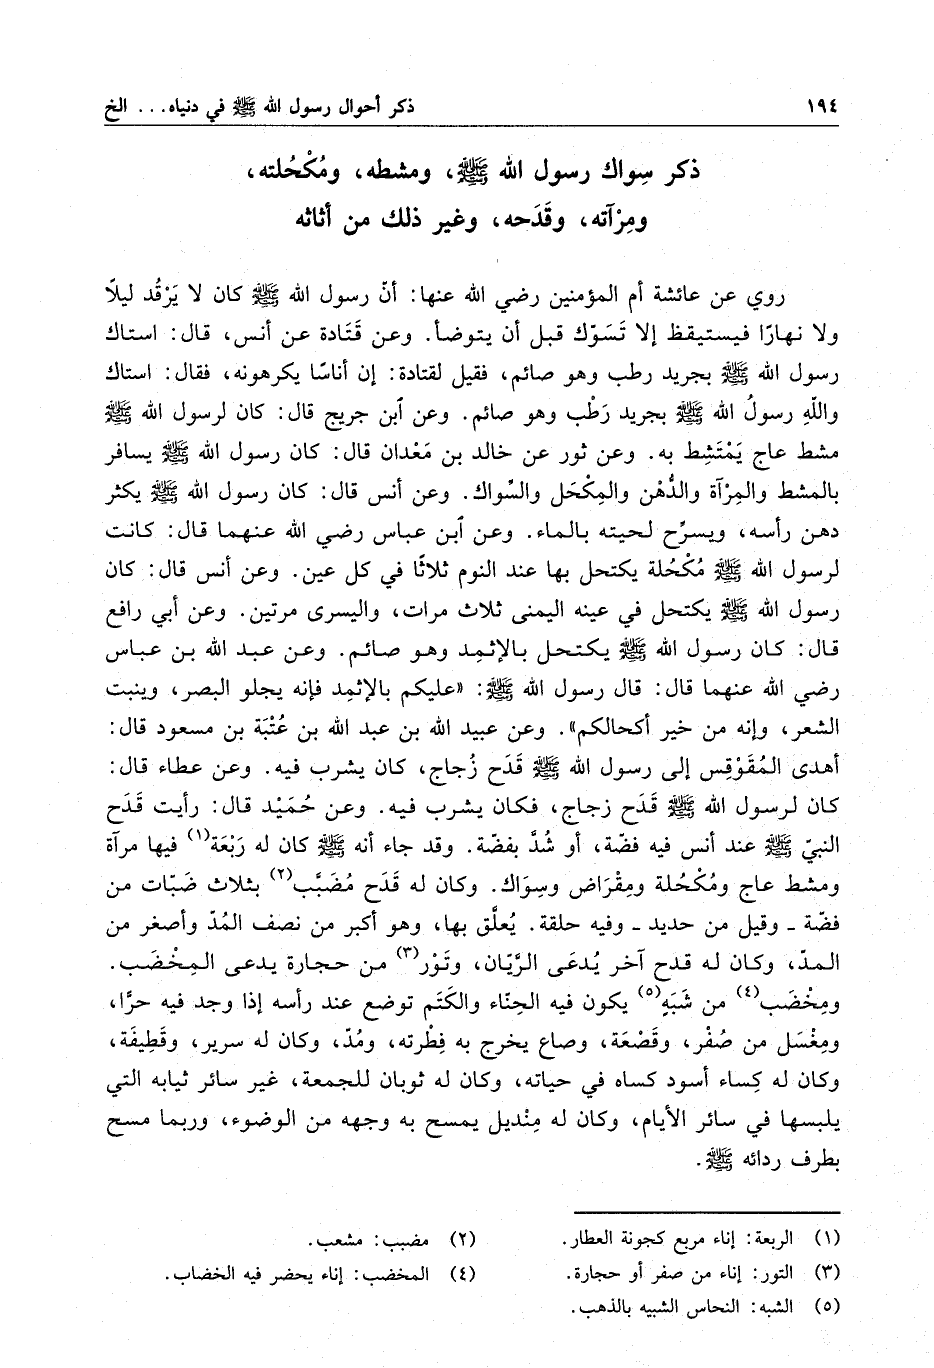 ١٩٤ ذكر أحوال رسول الله ﷺ في دنياه... الخ
ذكر سِواك رسول الله ﷺ، ومشطه، ومُكْحُلته،
ومِرْآته، وقَدَحه، وغير ذلك من أثاثه
روي عن عائشة أم المؤمنين رضي الله عنها: أنّ رسول الله ﷺ كان لا يَرْقُد ليلًا
ولا نهارًا فيستيقظ إلا تَسَوّك قبل أن يتوضأ. وعن قَتَادة عن أنس، قال: استاك
رسول الله ﷺ بجريد رطب وهو صائم، فقيل لقتادة: إن أناسًا يكرهونه، فقال: استاك
واللّٰهِ رسولُ الله ﷺ بجريد رَطْب وهو صائم. وعن ٱبن جريج قال: كان لرسول الله ﷺ
مشط عاج يَمْتَشِط به. وعن ثور عن خالد بن مَعْدان قال: كان رسول الله ﷺ يسافر
بالمشط والمِرْآة والدُّهْن والمِكْحَل والسِّواك. وعن أنس قال: كان رسول الله ﷺ يكثر
دهن رأسه، ويسرِّح لحيته بالماء. وعن ٱبن عباس رضي الله عنهما قال: كانت
لرسول الله ﷺ مُكْحُلة يكتحل بها عند النوم ثلاثًا في كل عين. وعن أنس قال: كان
رسول الله ﷺ يكتحل في عينه اليمنى ثلاث مرات، واليسرى مرتين. وعن أبي رافع
قال: كان رسول الله ﷺ يكتحل بالإثمِد وهو صائم. وعن عبد الله بن عباس
رضي الله عنهما قال: قال رسول الله ﷺ: «عليكم بالإثمِد فإنه يجلو البصر، وينبت
الشعر، وإنه من خير أكحالكم». وعن عبيد الله بن عبد الله بن عُتْبَة بن مسعود قال:
أهدى المُقَوْقِس إلى رسول الله ﷺ قَدَح زُجاج، كان يشرب فيه. وعن عطاء قال:
كان لرسول الله ﷺ قَدَح زجاج، فكان يشرب فيه. وعن حُمَيْد قال: رأيت قَدَح
النبيّ ﷺ عند أنس فيه فضّة، أو شُدَّ بفضّة. وقد جاء أنه ﷺ كان له رَبْعَة(١) فيها مرآة
ومشط عاج ومُكْحُلة ومِقْراض وسِوَاك. وكان له قَدَح مُضَبَّب(٢) بثلاث ضَبّات من
فضّة ـ وقيل من حديد ـ وفيه حلقة. يُعلَّق بها، وهو أكبر من نصف المُدّ وأصغر من
المدّ، وكان له قدح آخر يُدعَى الرَّيّان، وتَوْر(٣) من حجارة يدعى المِخْضَب.
ومِخْضَب(٤) من شَبَهٍ(٥) يكون فيه الحِنّاء والكَتَم توضع عند رأسه إذا وجد فيه حرًّا،
ومِغْسَل من صُفْر، وقَصْعَة، وصاع يخرج به فِطْرته، ومُدّ، وكان له سرير، وقَطِيفَة،
وكان له كِساء أسود كساه في حياته، وكان له ثوبان للجمعة، غير سائر ثيابه التي
يلبسها في سائر الأيام، وكان له مِنْديل يمسح به وجهه من الوضوء، وربما مسح
بطرف ردائه ﷺ.
(١) الربعة: إناء مربع كجونة العطار. (٢) مضبب: مشعب.
(٣) التور: إناء من صفر أو حجارة. (٤) المخضب: إناء يحضر فيه الخضاب.
(٥) الشبه: النحاس الشبيه بالذهب.